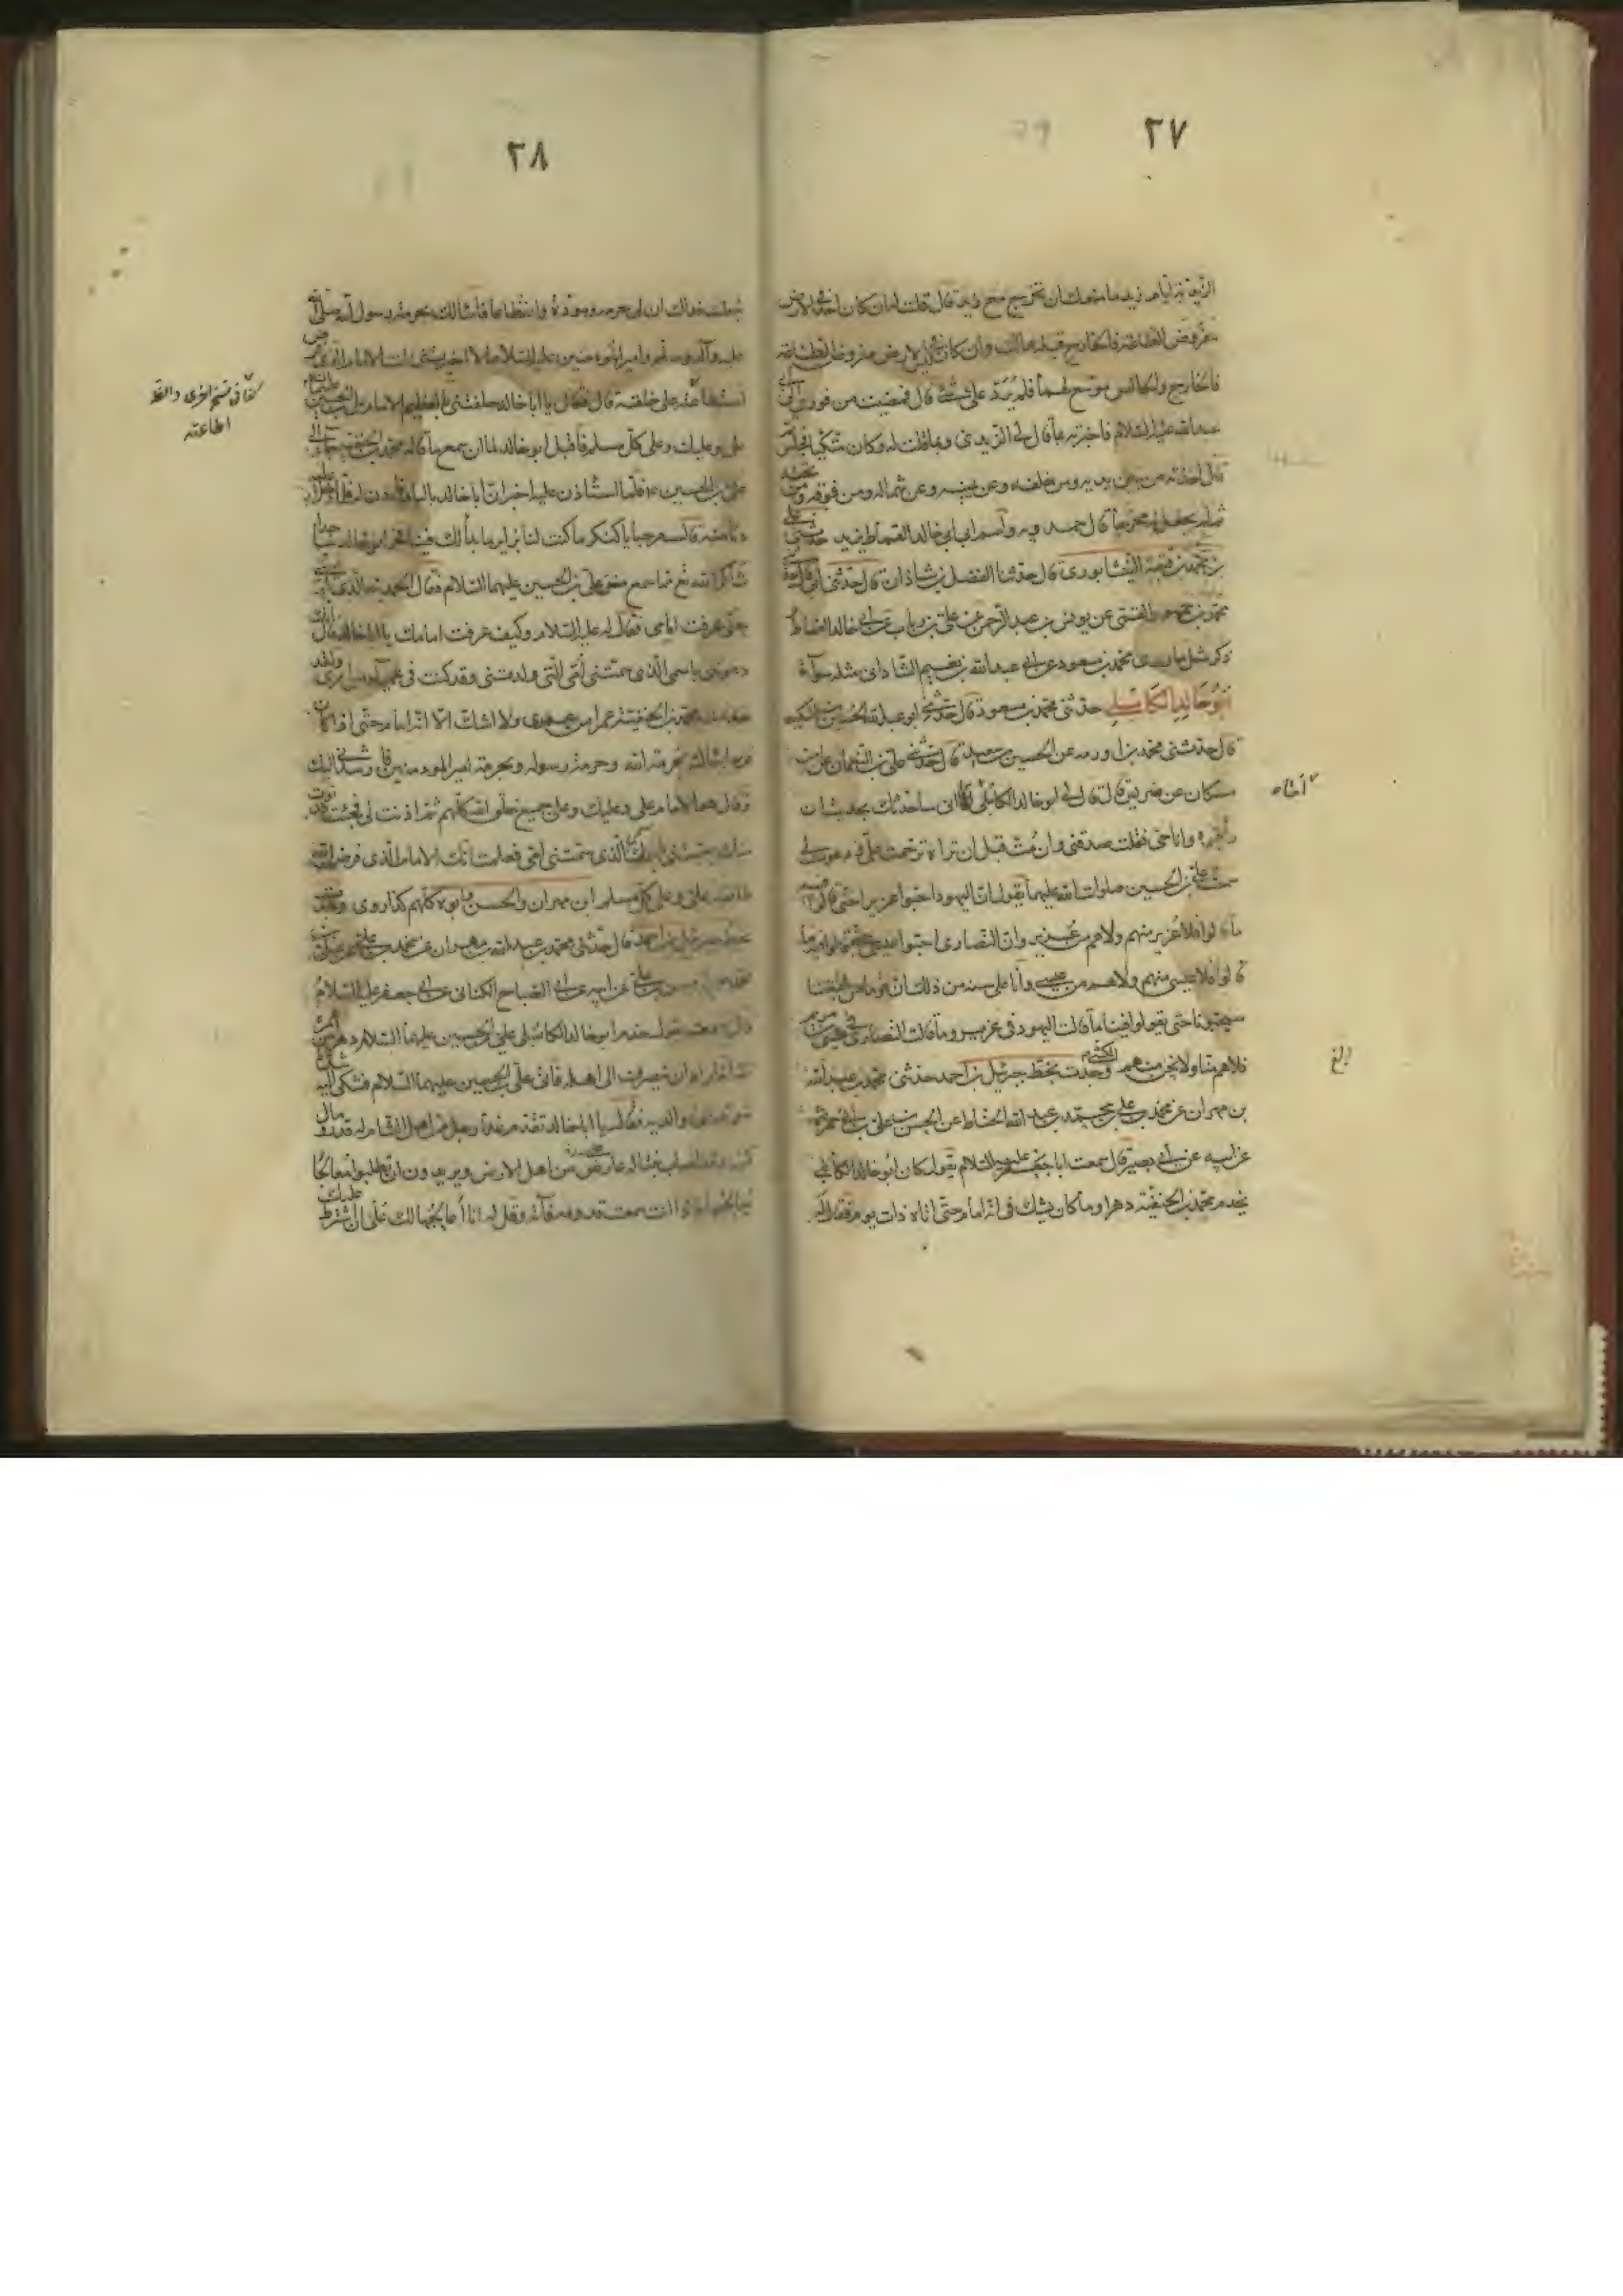 ٢٧
الزيدية ايام زيد ما منعك ان تخرج مع زيد قال قلت له ان كان احد في الارض
مفروض الطاعة فالخارج قبله هالك وان كان ليس في الارض مفروض الطاعة
فالخارج والجالس موسع لهما فلم يرد علي شيئا قال فمضيت من فوري الى ابي
عبدالله عليه السلام فاخبرته بما قال لي الزيدي وبما قلت له وكان متكيا فجلس
قال اخذته من بين يديه ومن خلفه وعن يمينه وعن شماله ومن فوقه ومن تحته
ثم لم تجعل له مخرجا قال حمدويه واسم ابي خالد القماط يزيد حدثني علي
بن محمد بن قتيبة النيشابوري قال حدثنا الفضل بن شاذان قال حدثني ابي
محمد بن جمهور القمي عن يونس بن عبد الرحمن عن علي بن رياب عن ابي خالد القماط
ذكر مثل ما روى محمد بن مسعود عن ابي عبدالله بن نعيم الشاذاني مثله سواء
ابو خالد الكابلي حدثني محمد بن مسعود قال حدثني ابو عبدالله الحسين بن اشكيب
قال حدثني محمد بن اورمه عن الحسين بن سعيد قال حدثني علي بن النعمان عن ابن
مسكان عن ضريس قال قال لي ابو خالد الكابلي اما اني ساحدثك بحديث ان
رأيتموه وانا حي فقلت صدقني وان مت قبل ان تراه ترحمت علي ودعوت لي
سمعت علي بن الحسين صلوات الله عليهما يقول ان اليهود احبوا عزيرا حتى قالوا فيه
ما قالوا فلا عزير منهم ولا هم من عزير وان النصارى احبوا عيسى حتى قالوا فيه ما
قالوا فلا عيسى منهم ولا هم من عيسى وانا على سنة من ذلك ان قوما من شيعتنا
سيحبونا حتى يقولوا فينا ما قالت اليهود في عزير وما قالت النصارى في عيسى بن مريم
فلا هم منا ولا نحن منهم الكشي وجدت بخط جبرئيل بن احمد حدثني محمد بن عبدالله
بن مهران عن محمد بن علي عن محمد بن عبد الله الحناط عن الحسن بن علي بن ابي حمزة
عن ابيه عن ابي بصير قال سمعت ابا جعفر عليه السلام يقول كان ابو خالد الكابلي
يخدم محمد بن الحنفية دهرا وما كان يشك في انه امام حتى اتاه ذات يوم فقال له
٢٨
جعلت فداك ان لي حرمة ومودة وانقطاعا فاسألك بحرمة رسول الله صلى الله
عليه وآله وسلم وامير المؤمنين عليه السلام الا اخبرتني انت الامام الذي فرض
الله طاعته على خلقه قال فقال يا ابا خالد حلفتني بالعظيم الامام علي بن الحسين عليهما السلام
علي وعليك وعلى كل مسلم فاقبل ابو خالد لما ان سمع ما قاله محمد بن الحنفية جاء الى
علي بن الحسين ع فلما استأذن عليه اخبر ان ابا خالد بالباب فاذن له فلما دخل عليه
دنا منه قال مرحبا يا كنكر ما كنت لنا بزاير ما بدا لك فينا فخر ابو خالد ساجدا
شاكرا لله تع مما سمع من علي بن الحسين عليهما السلام فقال الحمد لله الذي لم يمتني
حتى عرفت امامي فقال له علي عليه السلام وكيف عرفت امامك يا ابا خالد قال انك
دعوتني باسمي الذي سمتني امي التي ولدتني وقد كنت في عمياء من امري ولقد
خدمت محمد بن الحنفية عمرا من عمري ولا اشك الا انه امام حتى اذا كان
قريبا سألته بحرمة الله وحرمة رسوله وبحرمة امير المؤمنين فارشدني اليك
وقال هو الامام علي وعليك وعلى جميع خلق الله كلهم ثم اذنت لي فجئت فدنوت
منك سميتني باسمي الذي سمتني امي فعلمت انك الامام الذي فرض الله
طاعته علي وعلى كل مسلم ابن مهران والحسن وابوه كلهم كذا روى وجدت
بخط جبرئيل بن احمد قال حدثني محمد بن عبدالله بن مهران عن محمد بن علي عن علي بن
محمد عن الحسن بن علي عن ابيه عن ابي الصباح الكناني عن ابي جعفر عليه السلام
قال سمعته يقول خدم ابو خالد الكابلي علي بن الحسين عليهما السلام دهرا من عمره
ثم انه اراد ان ينصرف الى اهله فاتى علي بن الحسين عليهما السلام فشكى اليه شدة
شوقه الى والديه فقال يا ابا خالد تقدم غدا رجل من اهل الشام له قدر ومال
كثير وقد اصاب بنتا له عارض من اهل الارض ويريدون ان يطلبوا معالجا
يعالجها فاذا انت سمعت قدومه فاته وقل له انا اعالجها لك على ان اشترط عليك
كذا في نسخ اخرى
اطاعته